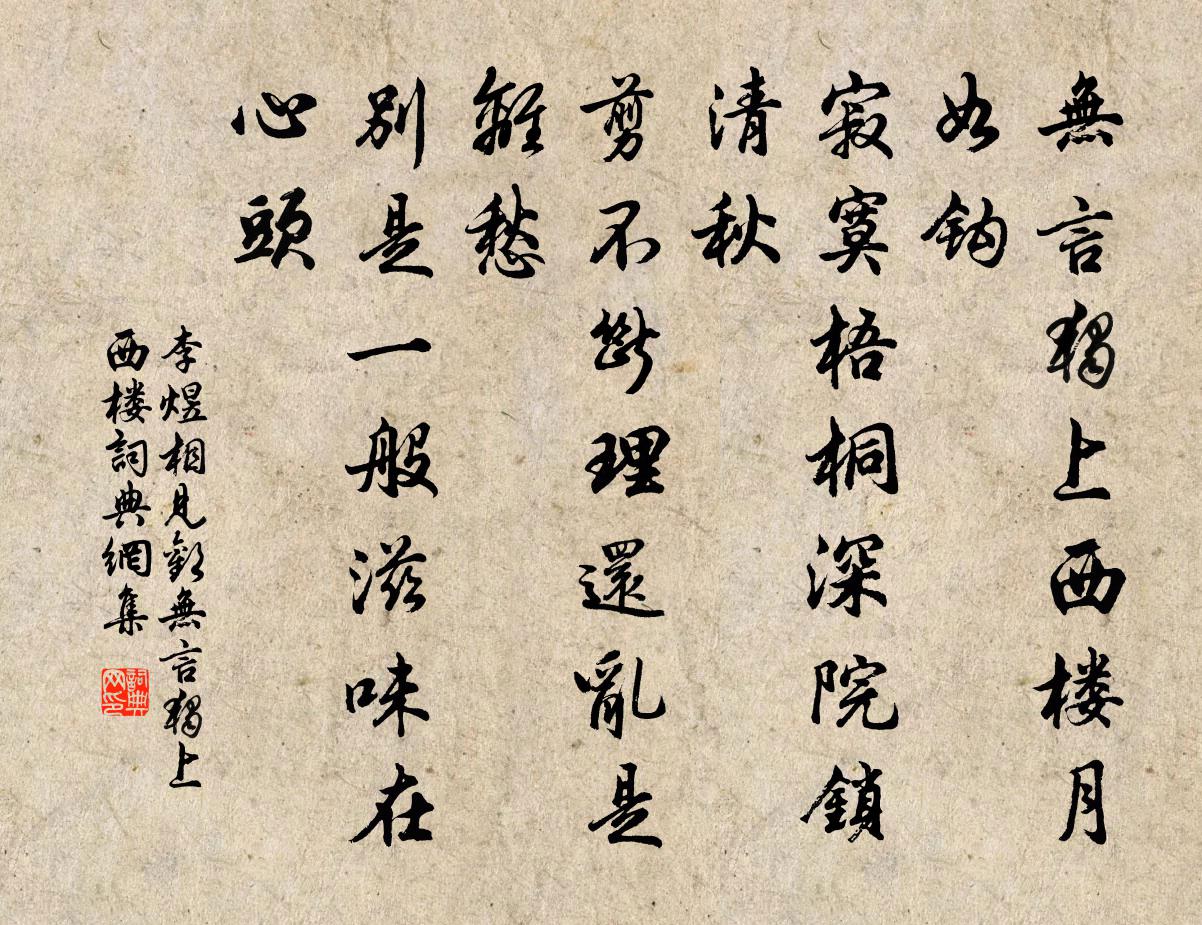 無言獨上西楼月
如鈎
寂寞梧桐深院鎖
清秋
剪不斷理還亂是
離愁
別是一般滋味在
心頭
李煜相見歡無言獨上
西楼詞典網集
詞典
网印